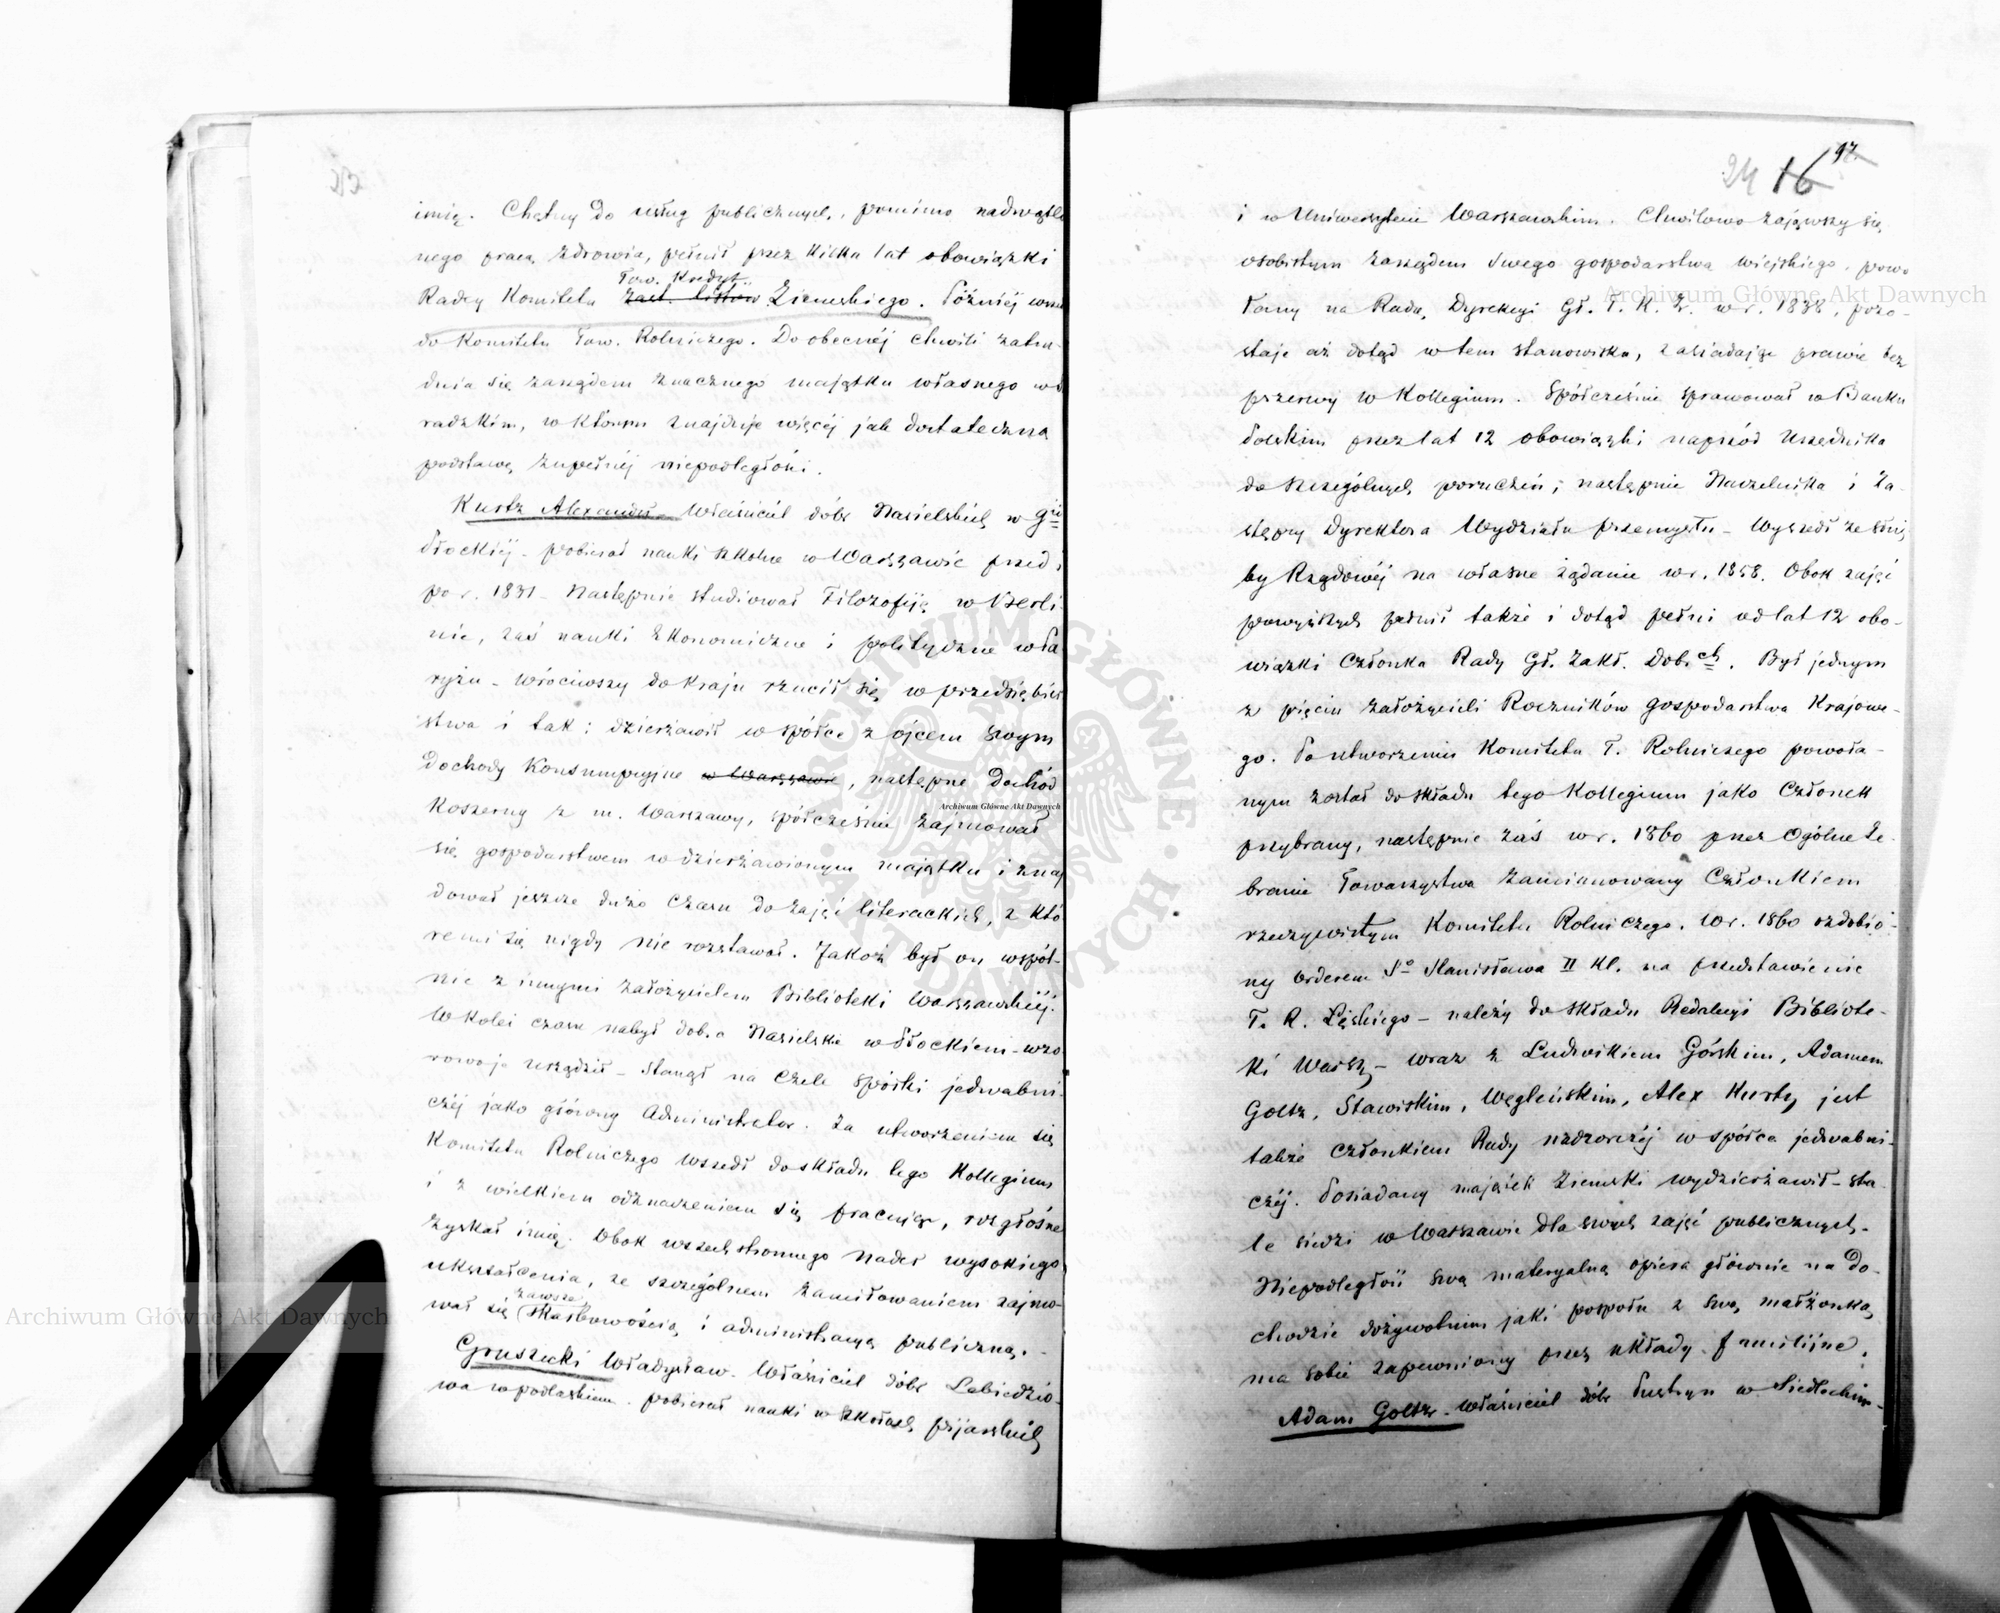 imię. Chętny do usług publicznych, pomimo nadwątlo
nego pracą zdrowia, pełnił przez kilka lat obowiązki
Tow. Kredyt.
Radcy Komitetu Zast. listów Ziemskiego. Później wszedł
do Komitetu Tow. Rolniczego. Do obecnéj chwili zatru-
dnia się zarządem znacznego majątku własnego w
radzkim, w którym znajduje więcéj jak dostateczną
podstawę zupełnéj niepodległości.
Kurtz Alexander właściciel dóbr Nasielskich w Gii
Płockiéj - pobierał nauki szkolne w Warszawie przed i
po r. 1831 - Następnie studiował Filozofiję w Berli
nie, zaś nauki ekonomiczne i polityczne w Pa
ryżu - wróciwszy do kraju rzucił się w przedsiębior
stwa i tak: dzierżawił w spółce z ojcem swym
Dochody Konsumpcyjne w Warszawie, następnie Dochód
Koszerny z m. Warszawy, spółcześnie zajmował
się gospodarstwem w dzierżawionym majątku i znaj
dował jeszcze dużo czasu do zajęć literackich, z któ
remi się nigdy nie rozstawał. Jakoż był on współ-
nie z innymi założycielem Biblioteki Warszawskiéj.
W kolei czasu nabył dobra Nasielskie w Płockiem - wzo
rowo je urządził - Stanął na czele spółki jedwabni
czéj jako główny Administrator. Za utworzeniem się
Komitetu Rolniczego wszedł do składu tego Kollegium
i z wielkiem odznaczeniem się pracując, rozgłośne
zyskał imię. Obok wszechstronnego nader wysokiego
ukształcenia, ze szczególnem zamiłowaniem zajmo-
zawsze
wał się Skarbowością i administracyą publiczną.
Gruszecki Władysław. Właściciel dóbr Łobiedzio-
wa w podlaskiem. pobierał nauki w szkołach pijarskich
24 16 97.
i w Uniwersytecie Warszawskim. Chwilowo zająwszy się
osobistym zarządem swego gospodarstwa wiejskiego, powo
łany na Radcę Dyrekcyi Gł. T. K. Z. w r. 1838, pozo-
staje aż dotąd w tem stanowisku, zasiadając prawie bez
przerwy w Kollegium. Spółcześnie sprawował w Banku
Polskim przez lat 12 obowiązki naprzód Urzędnika
do szczególnych poruczeń; następnie Naczelnika i Za-
stępcy Dyrektora Wydziału przemysłu - Wyszedł ze służ
by Rządowéj na własne żądanie w r. 1858. Obok zajęć
powyższych pełnił także i dotąd pełni od lat 12 obo-
wiązki członka Rady Gł. Zakł. Dob.ch. Był jednym
z pięciu założycieli Roczników gospodarstwa Krajowe-
go. Po utworzeniu Komitetu T. Rolniczego powoła-
nym został do składu tego Kollegium jako członek
przybrany, następnie zaś w r. 1860 przez Ogólne Ze-
branie Towarzystwa zamianowany członkiem
rzeczywistym Komitetu Rolniczego. W r. 1860 ozdobio-
ny orderem So Stanisława II Kl. na przedstawienie
T. R. - należy do składu Redakcyi Bibliote-
ki Warsz. - wraz z Ludwikiem Górskim, Adamem
Goltz, Stawiskim, Węgleńskim, Alex Kurtz, jest
także członkiem Rady nadzorczéj w spółce jedwabni-
czéj. Posiadany majątek ziemski wydzierżawił - sta-
le siedzi w Warszawie dla swych zajęć publicznych.
Niepodległość swą materyalną opiera głównie na do-
chodzie dożywotnim jaki pospołu z swą małżonką
ma sobie zapewniony przez układy familijne.
Adam Goltz - właściciel dóbr w Siedleckim -
Archiwum Główne Akt Dawnych
Archiwum Główne Akt Dawnych
Archiwum Główne Akt Dawnych
ARCHIWUM GŁÓWNE AKT DAWNYCH